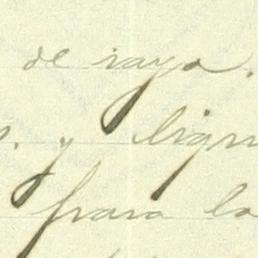 de raya.
y lign
para la